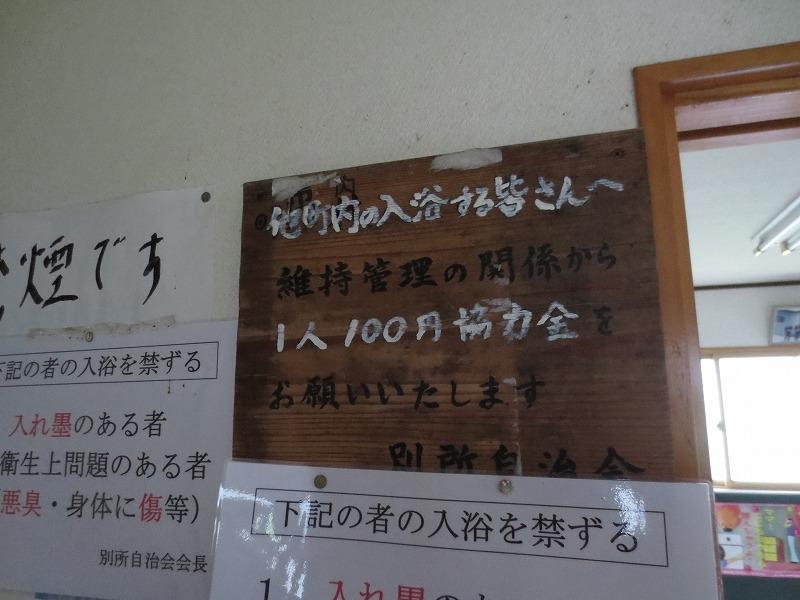 煙です
下記の者の入浴を禁ずる
入れ墨のある者
衛生上問題のある者
悪臭・身体に傷等）
別所自治会会長
他町内の入浴する皆さんへ
維持管理の関係から
1人100円協力金を
お願いいたします
別所自治会
下記の者の入浴を禁ずる
1 入れ墨の